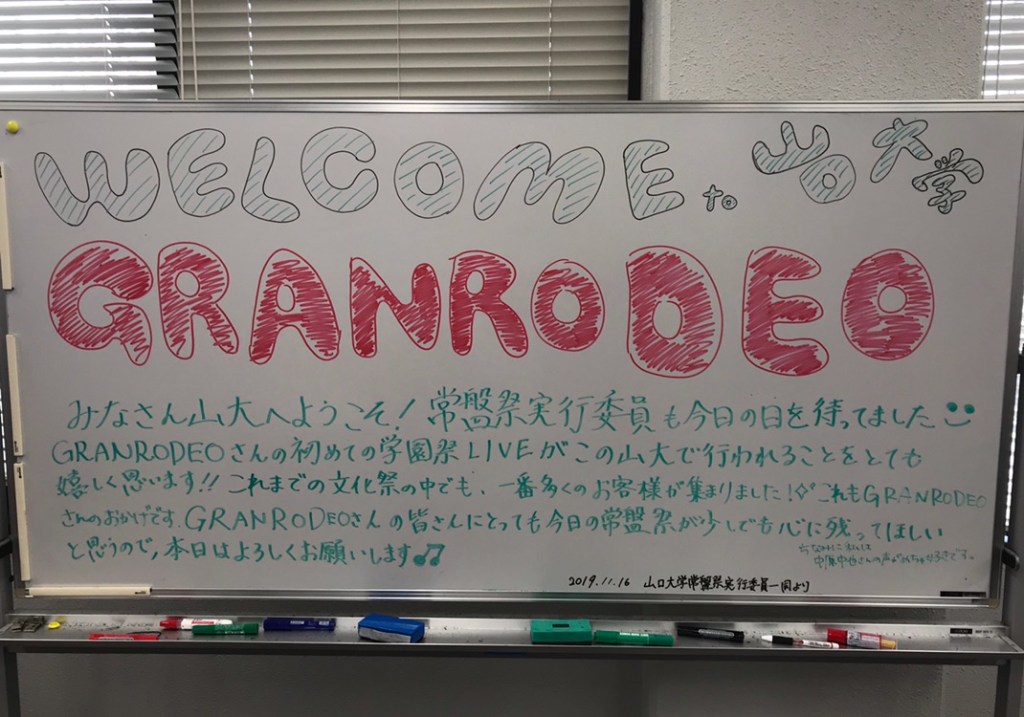 WELCOME to 山口大学
GRANRODEO
みなさん山大へようこそ！常盤祭実行委員も今日の日を待ってました
GRANRODEOさんの初めての学園祭LIVEがこの山大で行われることをとても
嬉しく思います!! これまでの文化祭の中でも、一番多くのお客様が集まりました！これもGRANRODEO
さんのおかげです。GRANRODEOさんの皆さんにとっても今日の常盤祭が少しでも心に残ってほしい
と思うので、本日はよろしくお願いします♪♫
ちなみに
中原中也くんの声
2019.11.16 山口大学常盤祭実行委員一同より